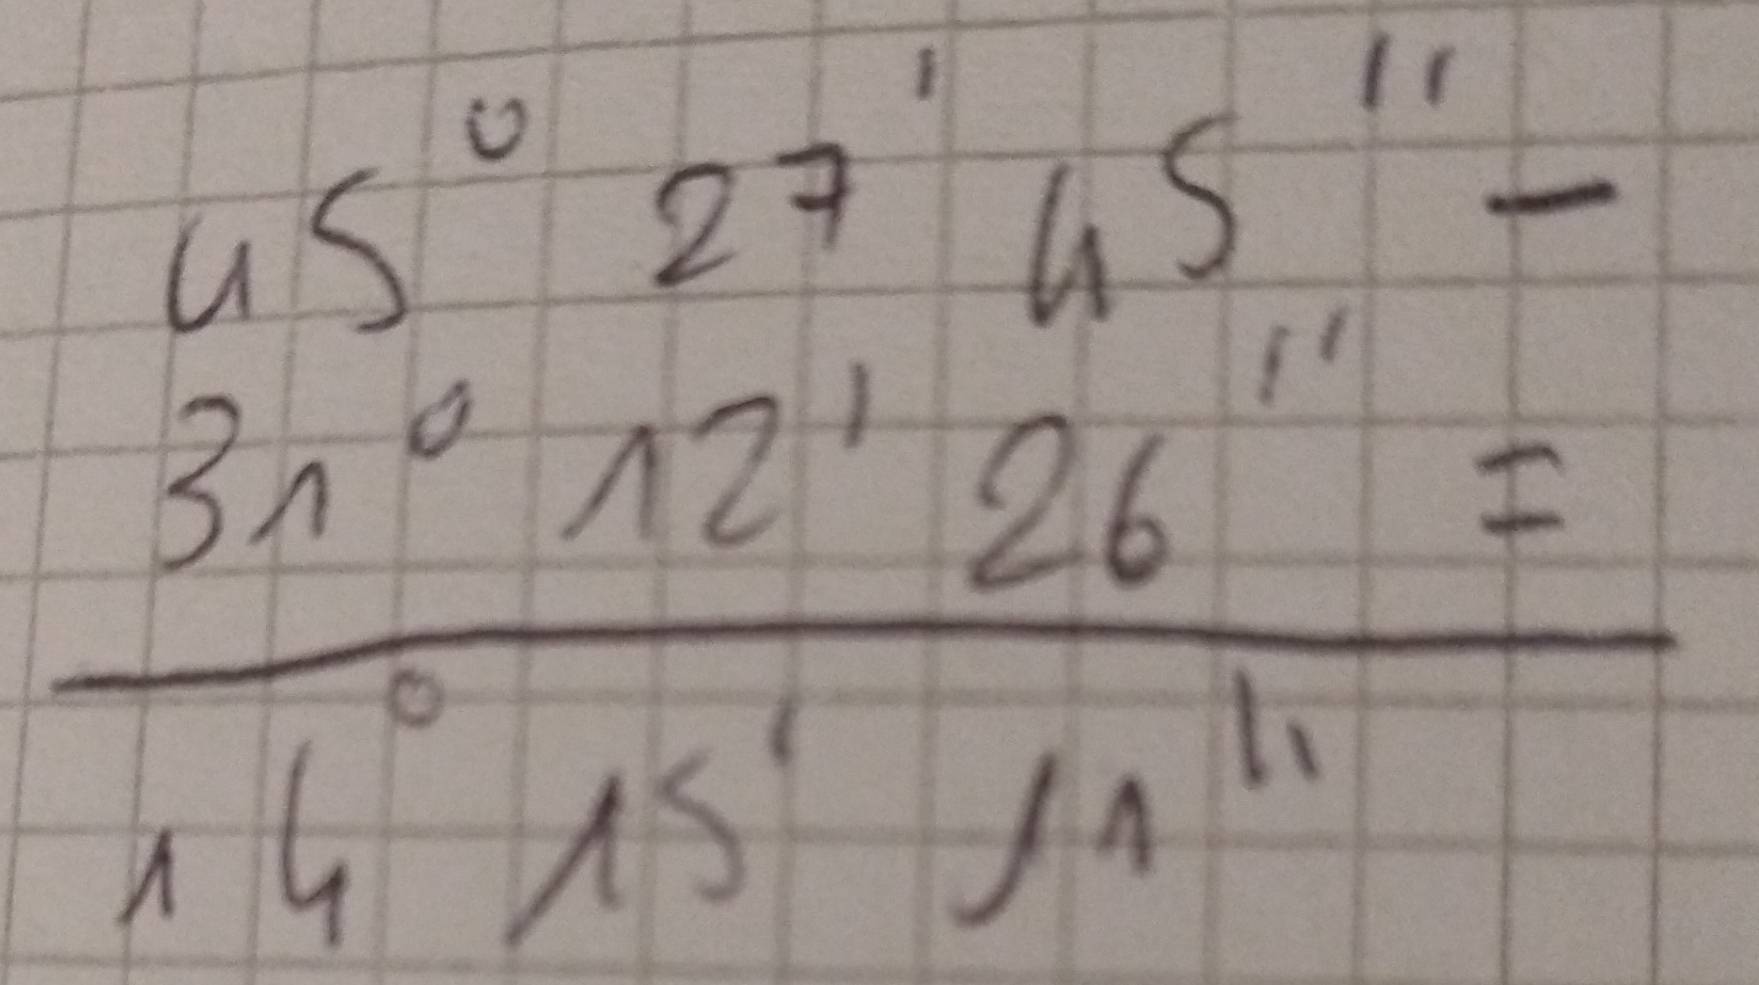 45° 27' 45" -
31° 12' 26" =
14° 15' 11"